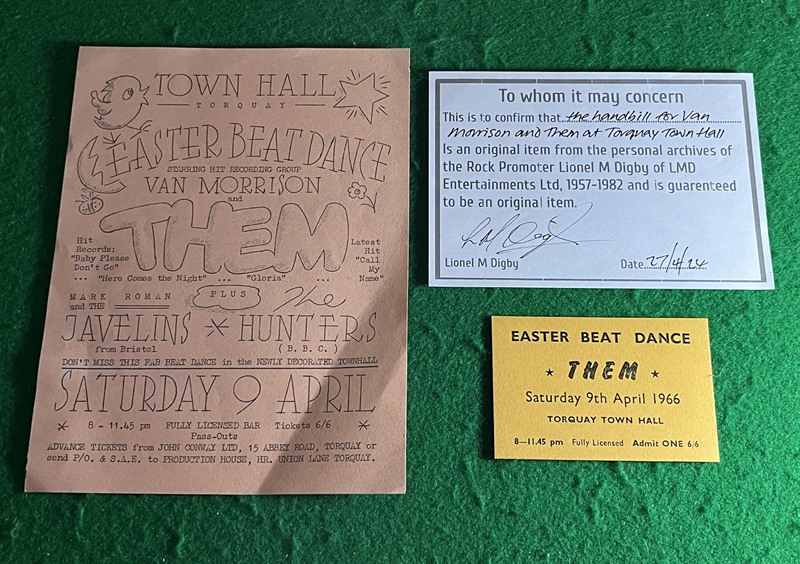 TOWN HALL
TORQUAY
EASTER BEAT DANCE
STARRING HIT RECORDING GROUP
VAN MORRISON
and
THEM
Hit
Records:
"Baby Please
Don't Go"
Latest
Hit
"Call
My
Name"
... "Here Comes the Night" ... "Gloria" ...
MARK ROMAN
and THE
PLUS
The
JAVELINS * HUNTERS
from Bristol
(B.B.C.)
DON'T MISS THIS FAB BEAT DANCE in the NEWLY DECORATED TOWNHALL
SATURDAY 9 APRIL
* 8 - 11.45 pm FULLY LICENSED BAR Tickets 6/6 *
Pass-Outs
ADVANCE TICKETS from JOHN CONWAY LTD, 15 ABBEY ROAD, TORQUAY or
send P/O. & S.A.E. to PRODUCTION HOUSE, HR. UNION LANE TORQUAY.
To whom it may concern
This is to confirm that the handbill for Van
Morrison and Them at Torquay Town Hall
Is an original item from the personal archives of
the Rock Promoter Lionel M Digby of LMD
Entertainments Ltd, 1957-1982 and is guarenteed
to be an original item.
Lionel M Digby
Date 27/4/24
EASTER BEAT DANCE
★ THEM ★
Saturday 9th April 1966
TORQUAY TOWN HALL
8—11.45 pm Fully Licensed Admit ONE 6/6